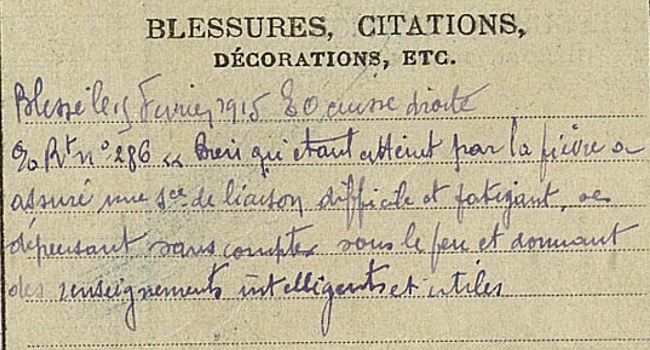 BLESSURES, CITATIONS,
DÉCORATIONS, ETC.
Blessé le 15 Février 1915 EO cuisse droite
Rt n° 286 « Bien qu'étant atteint par la fièvre a
assuré une sce de liaison difficile et fatigant, se
dépensant sans compter sous le feu et donnant
des renseignements intelligents et utiles